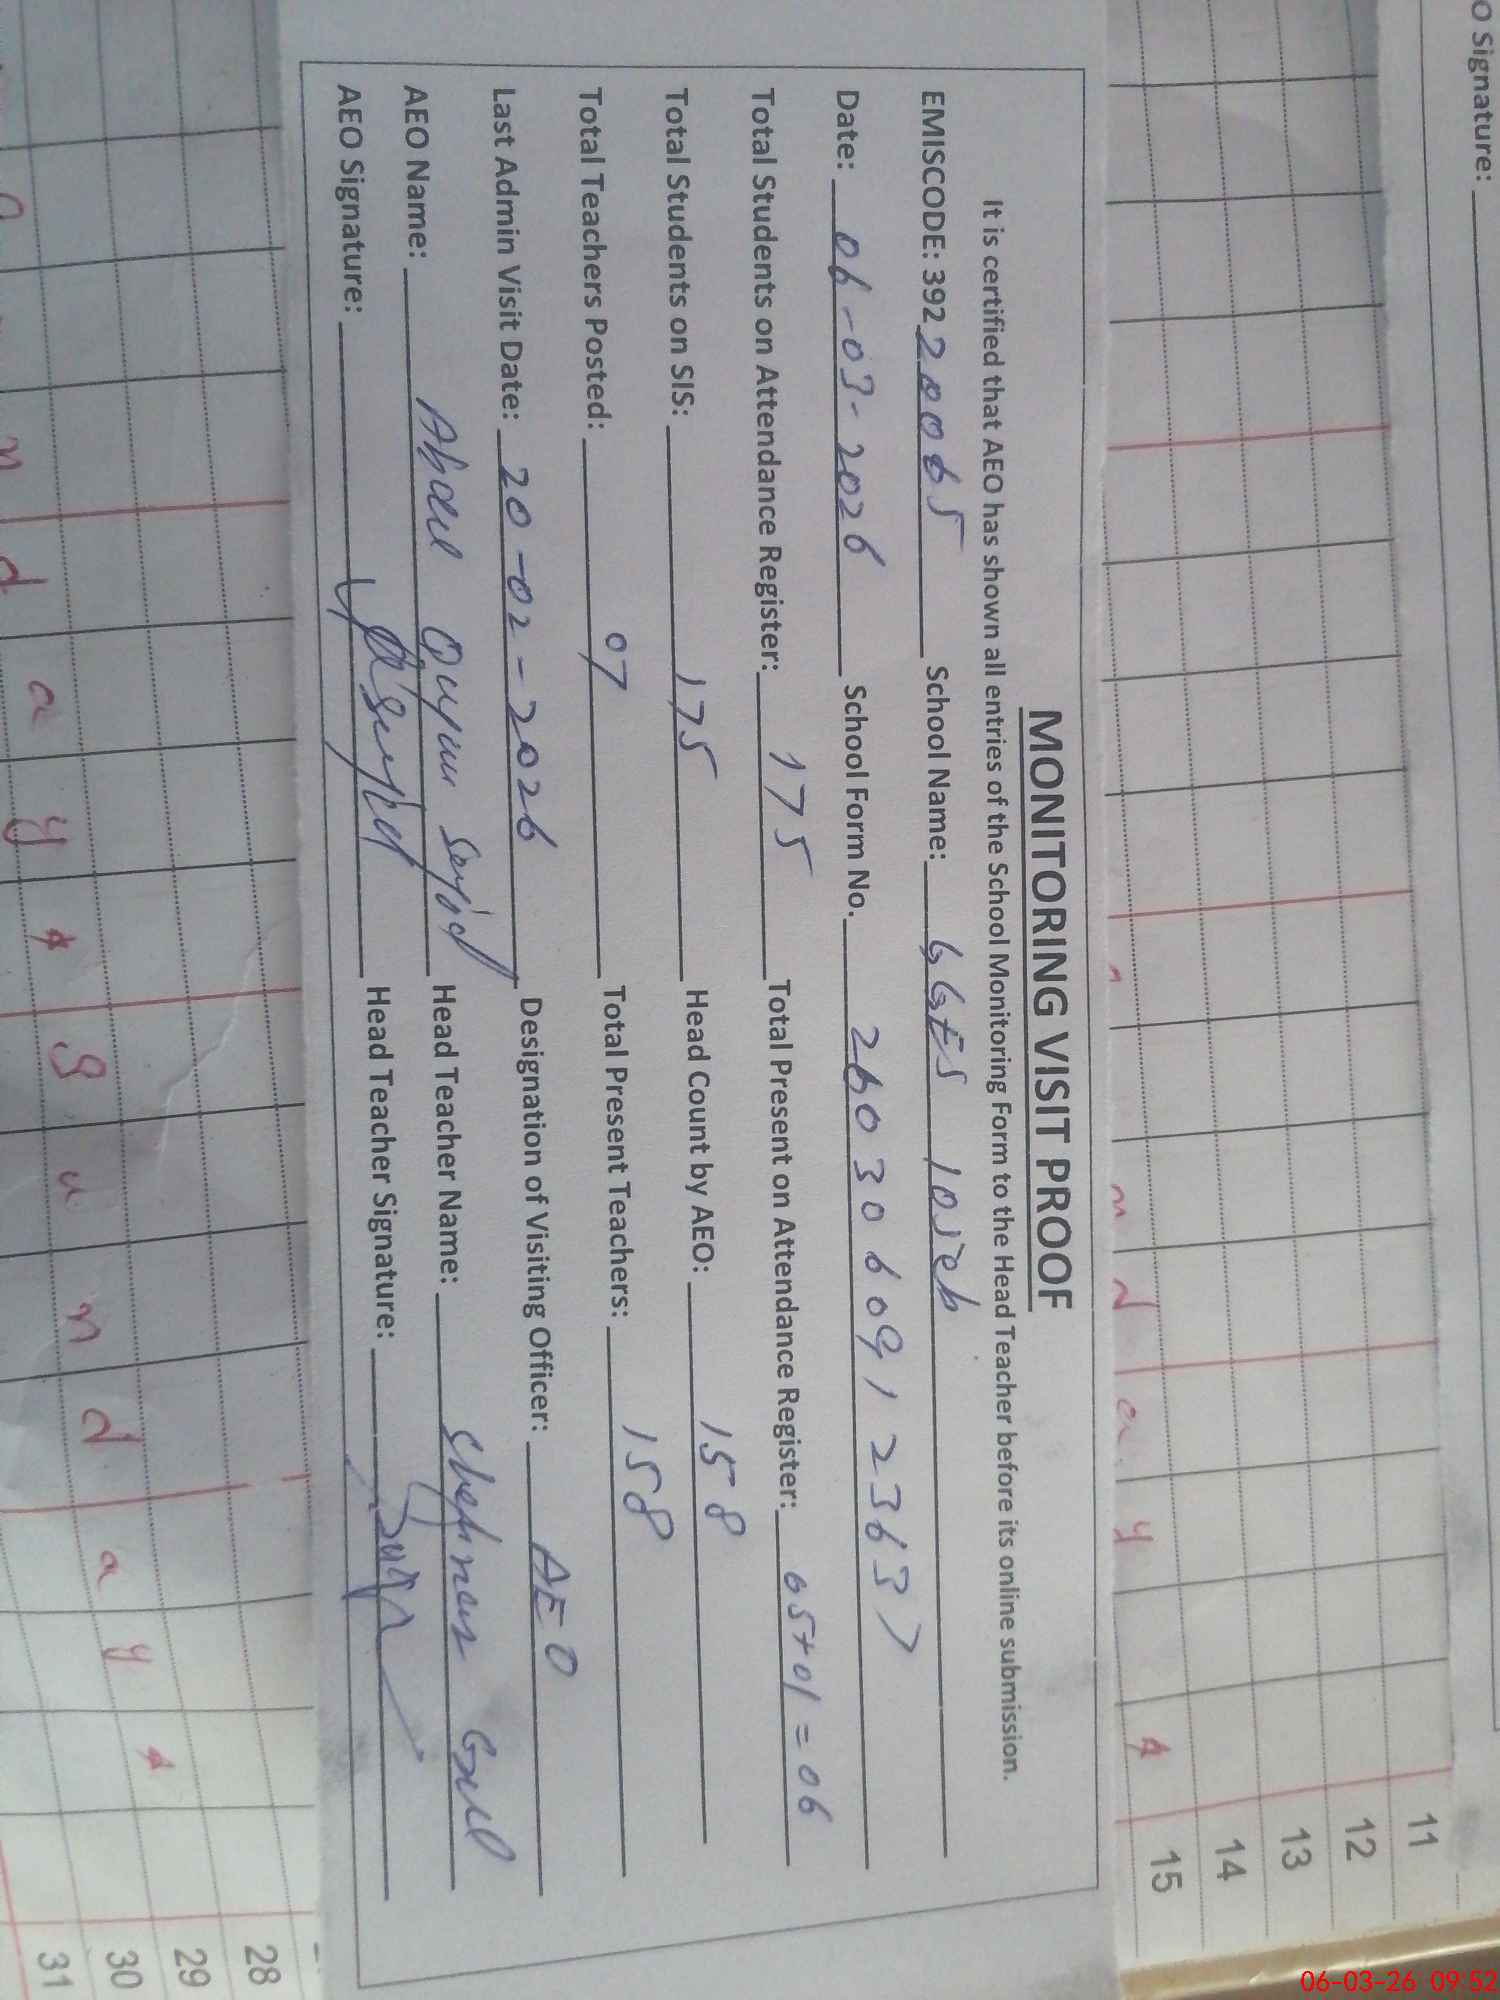 O Signature:
11
12
13
14
15
n d a y
MONITORING VISIT PROOF
It is certified that AEO has shown all entries of the School Monitoring Form to the Head Teacher before its online submission.
EMISCODE: 39220065 School Name: GGES
Date: 06-03-2026 School Form No. 26030609123637
Total Students on Attendance Register: 175 Total Present on Attendance Register: 05+01=06
Total Students on SIS: 175 Head Count by AEO: 158
Total Teachers Posted: 07 Total Present Teachers: 158
Last Admin Visit Date: 20-02-2026 Designation of Visiting Officer: AEO
AEO Name: Abdul Qayum Sayid Head Teacher Name: Gull
AEO Signature: Head Teacher Signature:
28
29
30
31
n d a y s u n d a y
06-03-26 09:52